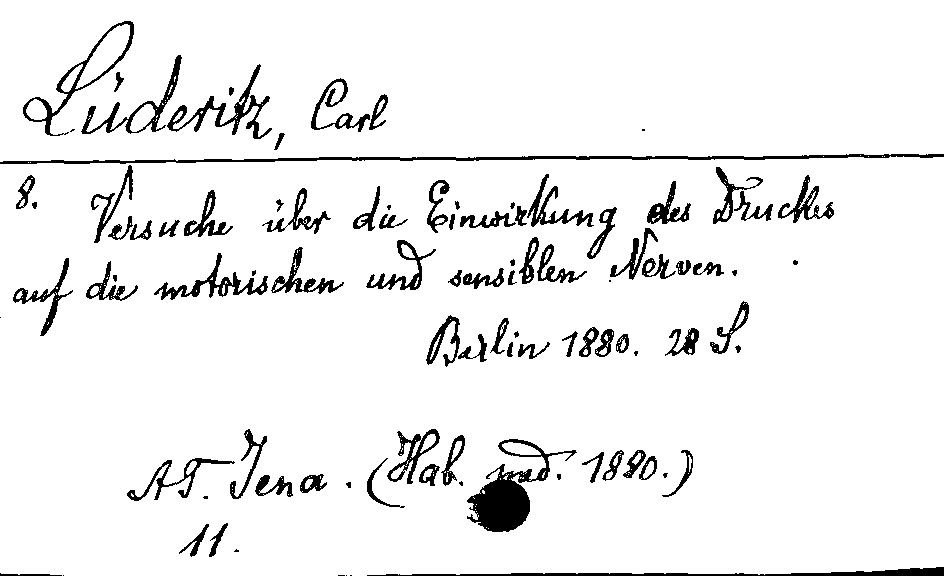 Lüderitz, Carl
8. Versuche über die Einwirkung des Druckes
auf die motorischen und sensiblen Nerven.
Berlin 1880. 28 S.
AT. Jena. (Hab. med. 1880.)
11.